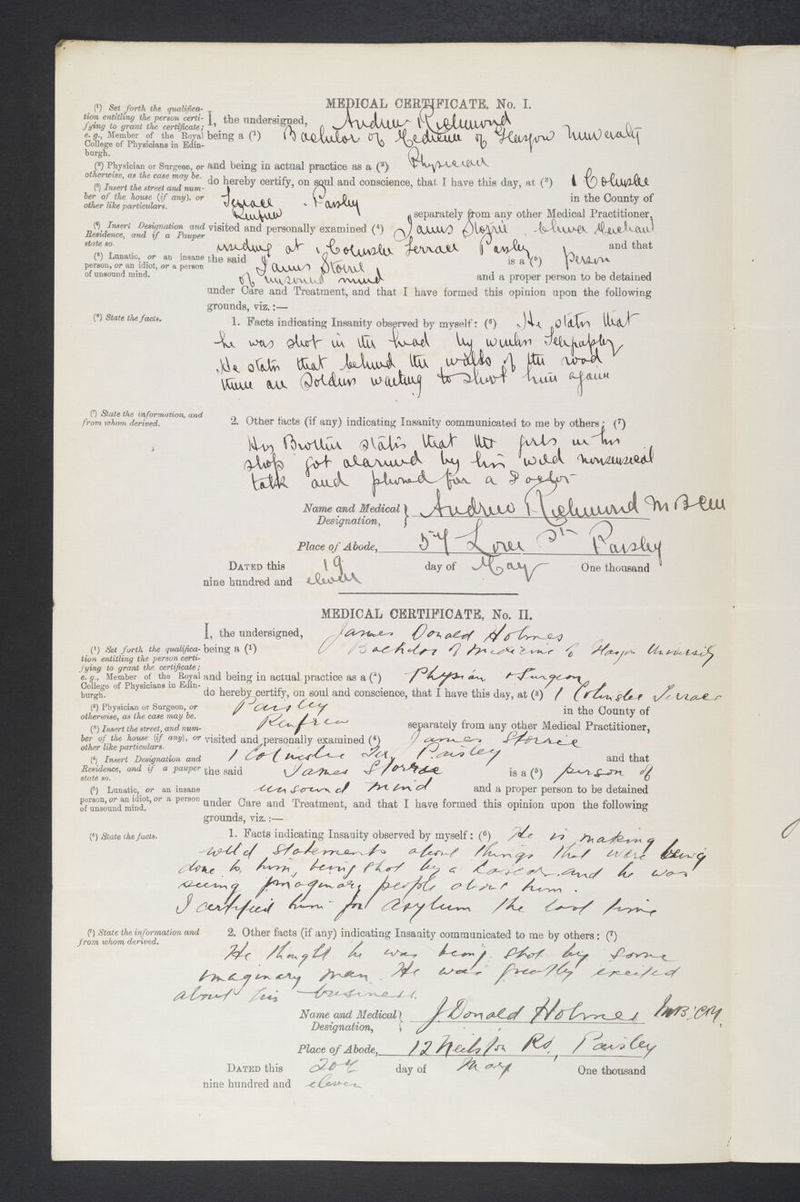 MEDICAL CERTIFICATE, No. I.
(¹) Set forth the qualifica-
tion entitling the person certi-
fying to grant the certificate;
e. g., Member of the Royal
College of Physicians in Edin-
burgh.
(²) Physician or Surgeon, or
otherwise, as the case may be.
(³) Insert the street and num-
ber of the house (if any), or
other like particulars.
(⁴) Insert Designation and
Residence, and if a Pauper
state so.
(⁵) Lunatic, or an insane
person, or an idiot, or a person
of unsound mind.
(⁶) State the facts.
(⁷) State the information, and
from whom derived.
I, the undersigned, Andrew Richmond
being a (¹) Bachelor of Medicine of Glasgow University
and being in actual practice as a (²) Physician
do hereby certify, on soul and conscience, that I have this day, at (³) 1 Columslee
Terrace Paisley in the County of
Renfrew separately from any other Medical Practitioner,
visited and personally examined (⁴) James Storrie
residing at 1 Columslee Terrace Paisley and that
the said James Storrie is a (⁵) Person
of unsound mind and a proper person to be detained
under Care and Treatment, and that I have formed this opinion upon the following
grounds, viz.:—
1. Facts indicating Insanity observed by myself: (⁶) He states that
he was shot in the head by wireless Telegraphy
He states that behind the walls of the road
there are Soldiers waiting to shoot him again
2. Other facts (if any) indicating Insanity communicated to me by others: (⁷)
His Brother states that the girls in his
shop got alarmed by his wild nonsensical
talk and phoned for a Doctor
Name and Medical Designation, Andrew Richmond M B CM
Place of Abode, 57 Love St Paisley
DATED this 19 day of May One thousand
nine hundred and eleven
MEDICAL CERTIFICATE, No. II.
(¹) Set forth the qualifica-
tion entitling the person certi-
fying to grant the certificate;
e. g., Member of the Royal
College of Physicians in Edin-
burgh.
(²) Physician or Surgeon, or
otherwise, as the case may be.
(³) Insert the street, and num-
ber of the house (if any), or
other like particulars.
(⁴) Insert Designation and
Residence, and if a pauper
state so.
(⁵) Lunatic, or an insane
person, or an idiot, or a person
of unsound mind.
(⁶) State the facts.
(⁷) State the information and
from whom derived.
I, the undersigned, James Donald Holmes
being a (¹) Bachelor of Medicine of Glasgow University
and being in actual practice as a (²) Physician & Surgeon
do hereby certify, on soul and conscience, that I have this day, at (³) 1 Columslee Terrace
Paisley in the County of
Renfrew separately from any other Medical Practitioner,
visited and personally examined (⁴) James Storrie
1 Columslee Ter, Paisley and that
the said James Storrie is a (⁵) person of
unsound mind and a proper person to be detained
under Care and Treatment, and that I have formed this opinion upon the following
grounds, viz.:—
1. Facts indicating Insanity observed by myself: (⁶) He is making
wild statements about things that were being
done to him, being shot by a Lascar and he was
seeing imaginary people about him.
I certified him for Asylum the last time
2. Other facts (if any) indicating Insanity communicated to me by others: (⁷)
He thought he was being shot by some
imaginary man. He was greatly excited
about his business.
Name and Medical Designation, J. Donald Holmes M.B; CM,
Place of Abode, 12 Neilston Rd, Paisley
DATED this 20th day of May One thousand
nine hundred and eleven